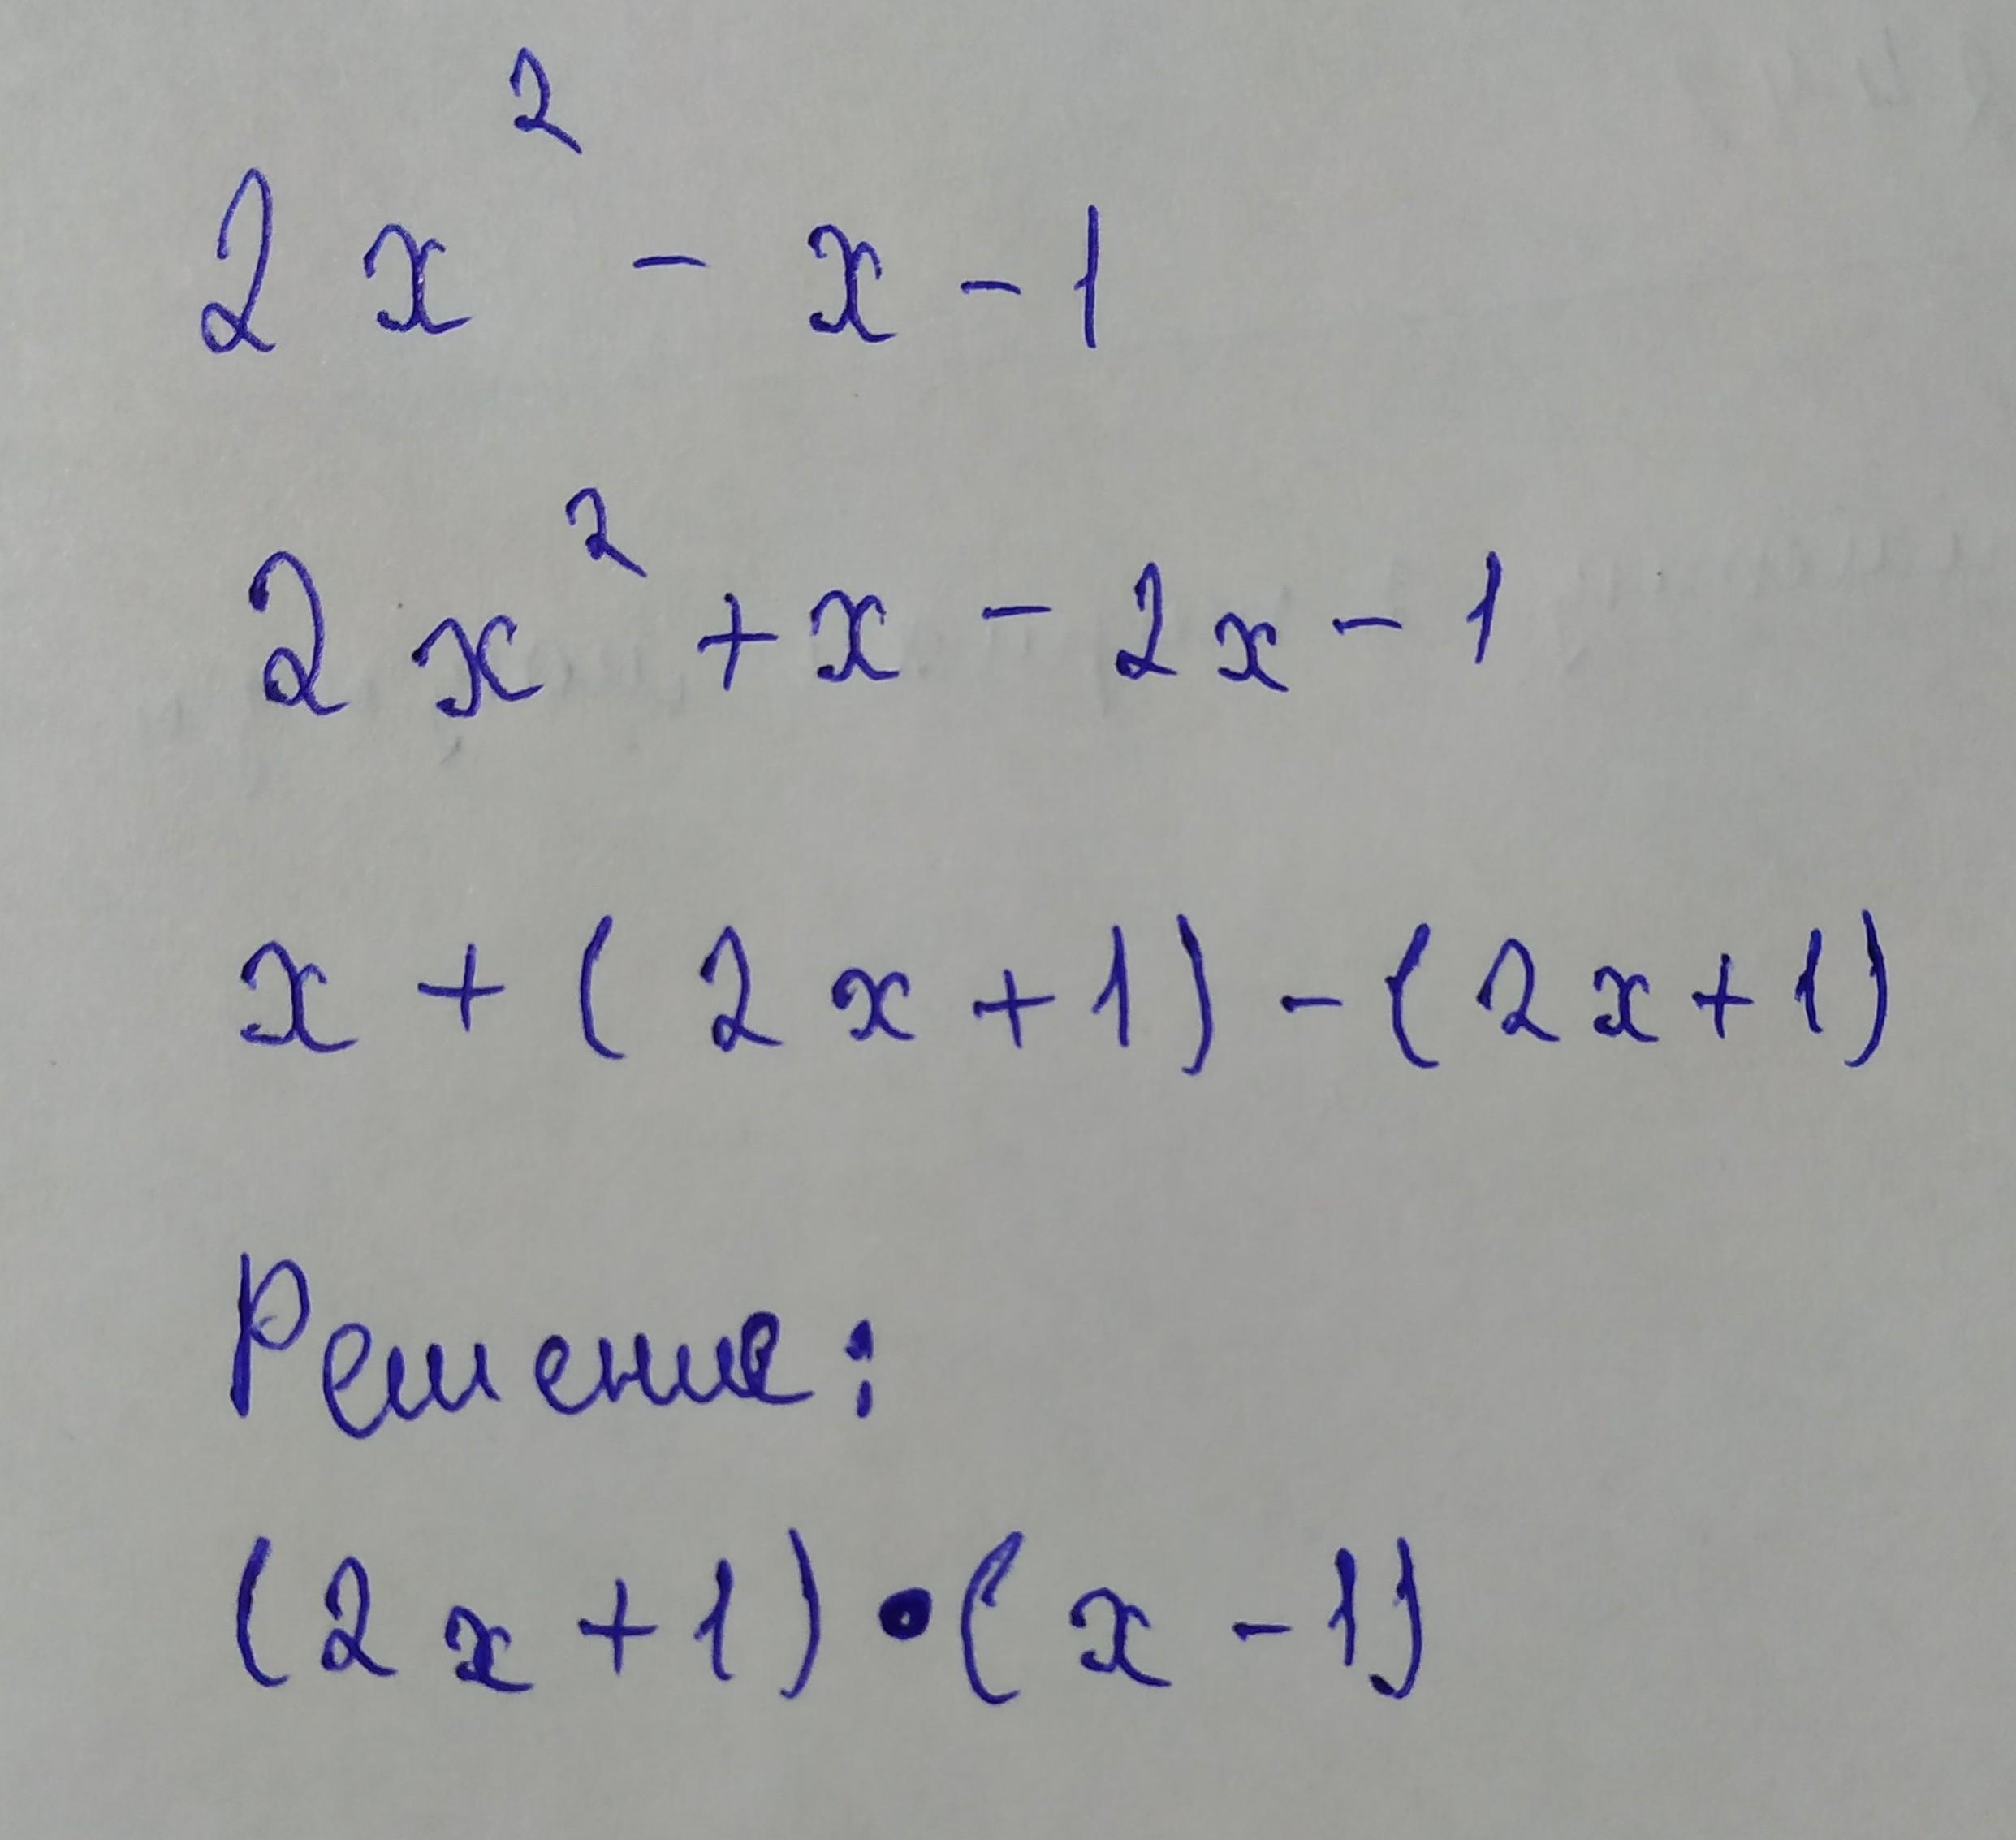 2x² - x - 1
2x² + x - 2x - 1
x + (2x + 1) - (2x + 1)
Решение:
(2x + 1) • (x - 1)